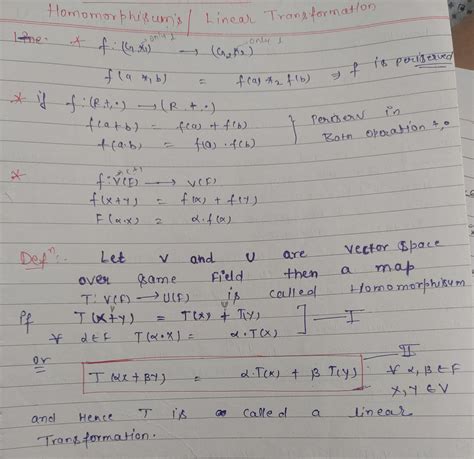 Homomorphisum's / Linear Transformation
* f: (G, *₁) only 1 → (G₂ *₂) only 1
f(a *₁ b) = f(a) *₂ f(b) ⇒ f is periserved
* if f: (R +, •) → (R +, •)
f(a+b) = f(a) + f(b) } Periserv in
f(a.b) = f(a) . f(b) Both operation +, •
*
f: V(F) → V(F)
f(x+y) = f(x) + f(y)
F(α.x) = α.f(x)
Defⁿ:. Let V and U are vector space
over same field then a map
T: V(F) → U(F) is called Homomorphisum
If T(x+y) = T(x) + T(y) ] — I
∀ α∈F T(α.x) = α.T(x)
or
II
T(αx + βy) = α.T(x) + β T(y) ∀ α, β ∈ F
x, y ∈ V
and Hence T is called a linear
Transformation.